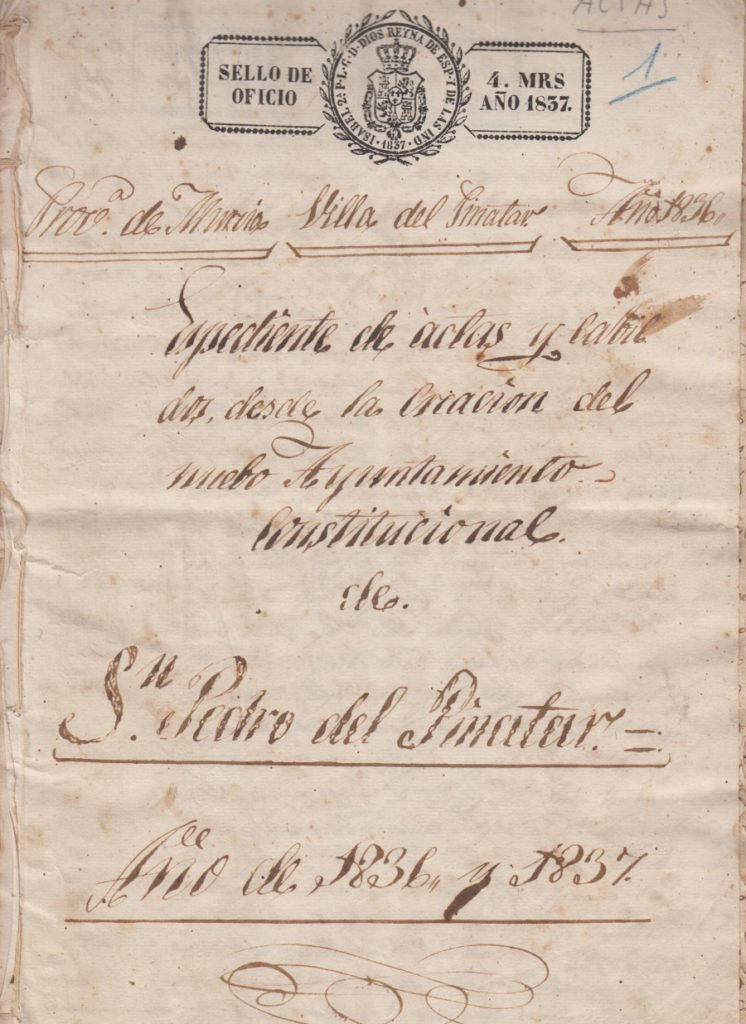 ACTAS
1
SELLO DE OFICIO
ISABEL 2ª P.L.G.D. DIOS REYNA DE ESP. Y DE LAS IND
1837
4. MRS AÑO 1837.
Provª. de Murcia Villa del Pinatar. Año 1836,,
Espediente de àctas y Cabil
dos, desde la Creacion del
nuebo Ayuntamiento
Constitucional.
de.
Sn. Pedro del Pinatar. =
Año de 1836,, y 1837.